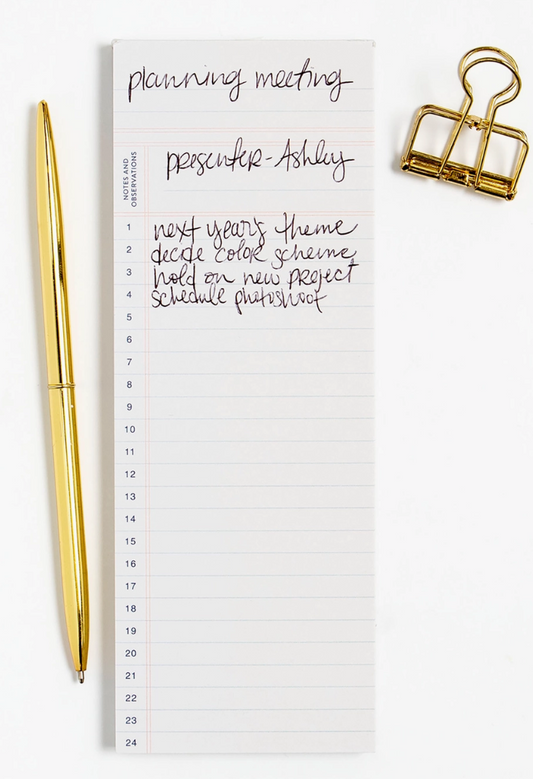 planning meeting
presenter-Ashley
NOTES AND
OBSERVATIONS
1 next year's theme
2 decide color scheme
3 hold on new project
4 schedule photoshoot
5
6
7
8
9
10
11
12
13
14
15
16
17
18
19
20
21
22
23
24